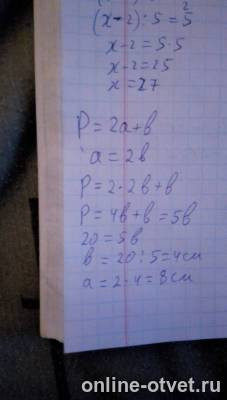 (x-2):5=5
2
x-2=5·5
x-2=25
x=27
P=2a+b
a=2b
P=2·2b+b
P=4b+b=5b
20=5b
b=20:5=4см
a=2·4=8см
online-otvet.ru